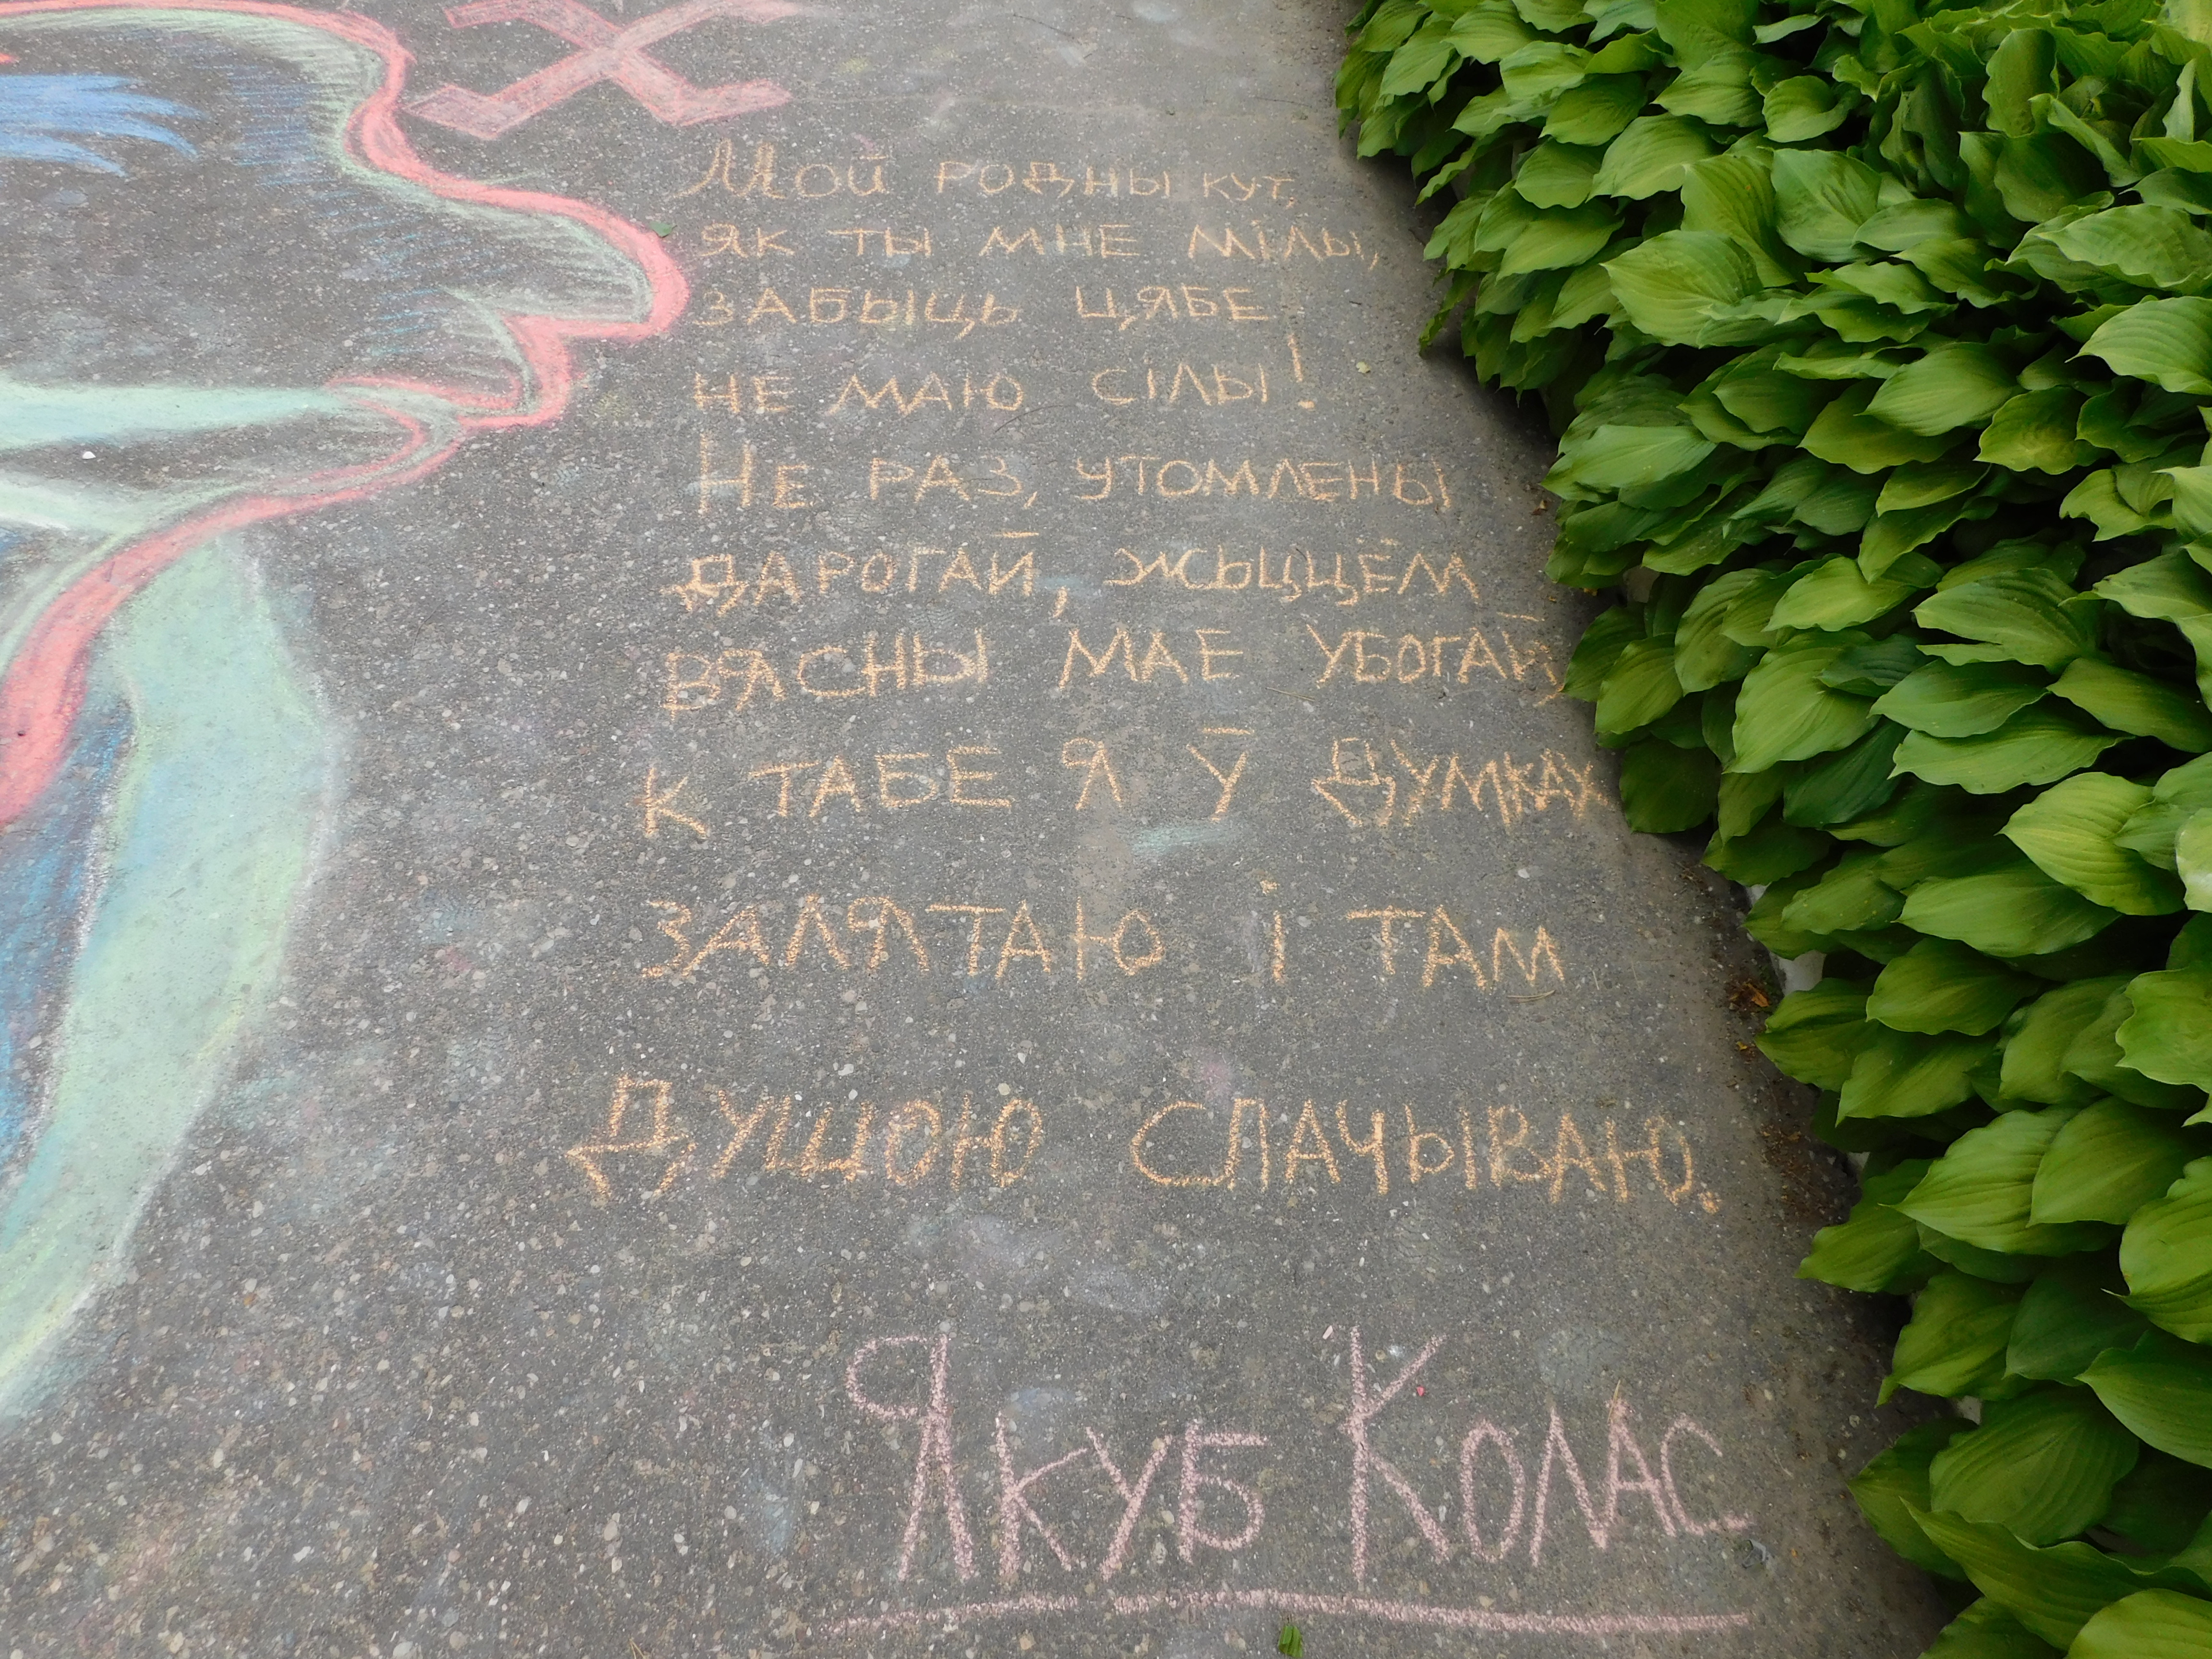 Мой родны кут,
як ты мне мілы,
забыць цябе
не маю сілы!
Не раз, утомлены
дарогай, жыццём
вясны мае убогай,
к табе я ў думках
залятаю і там
душою спачываю.
Якуб Колас